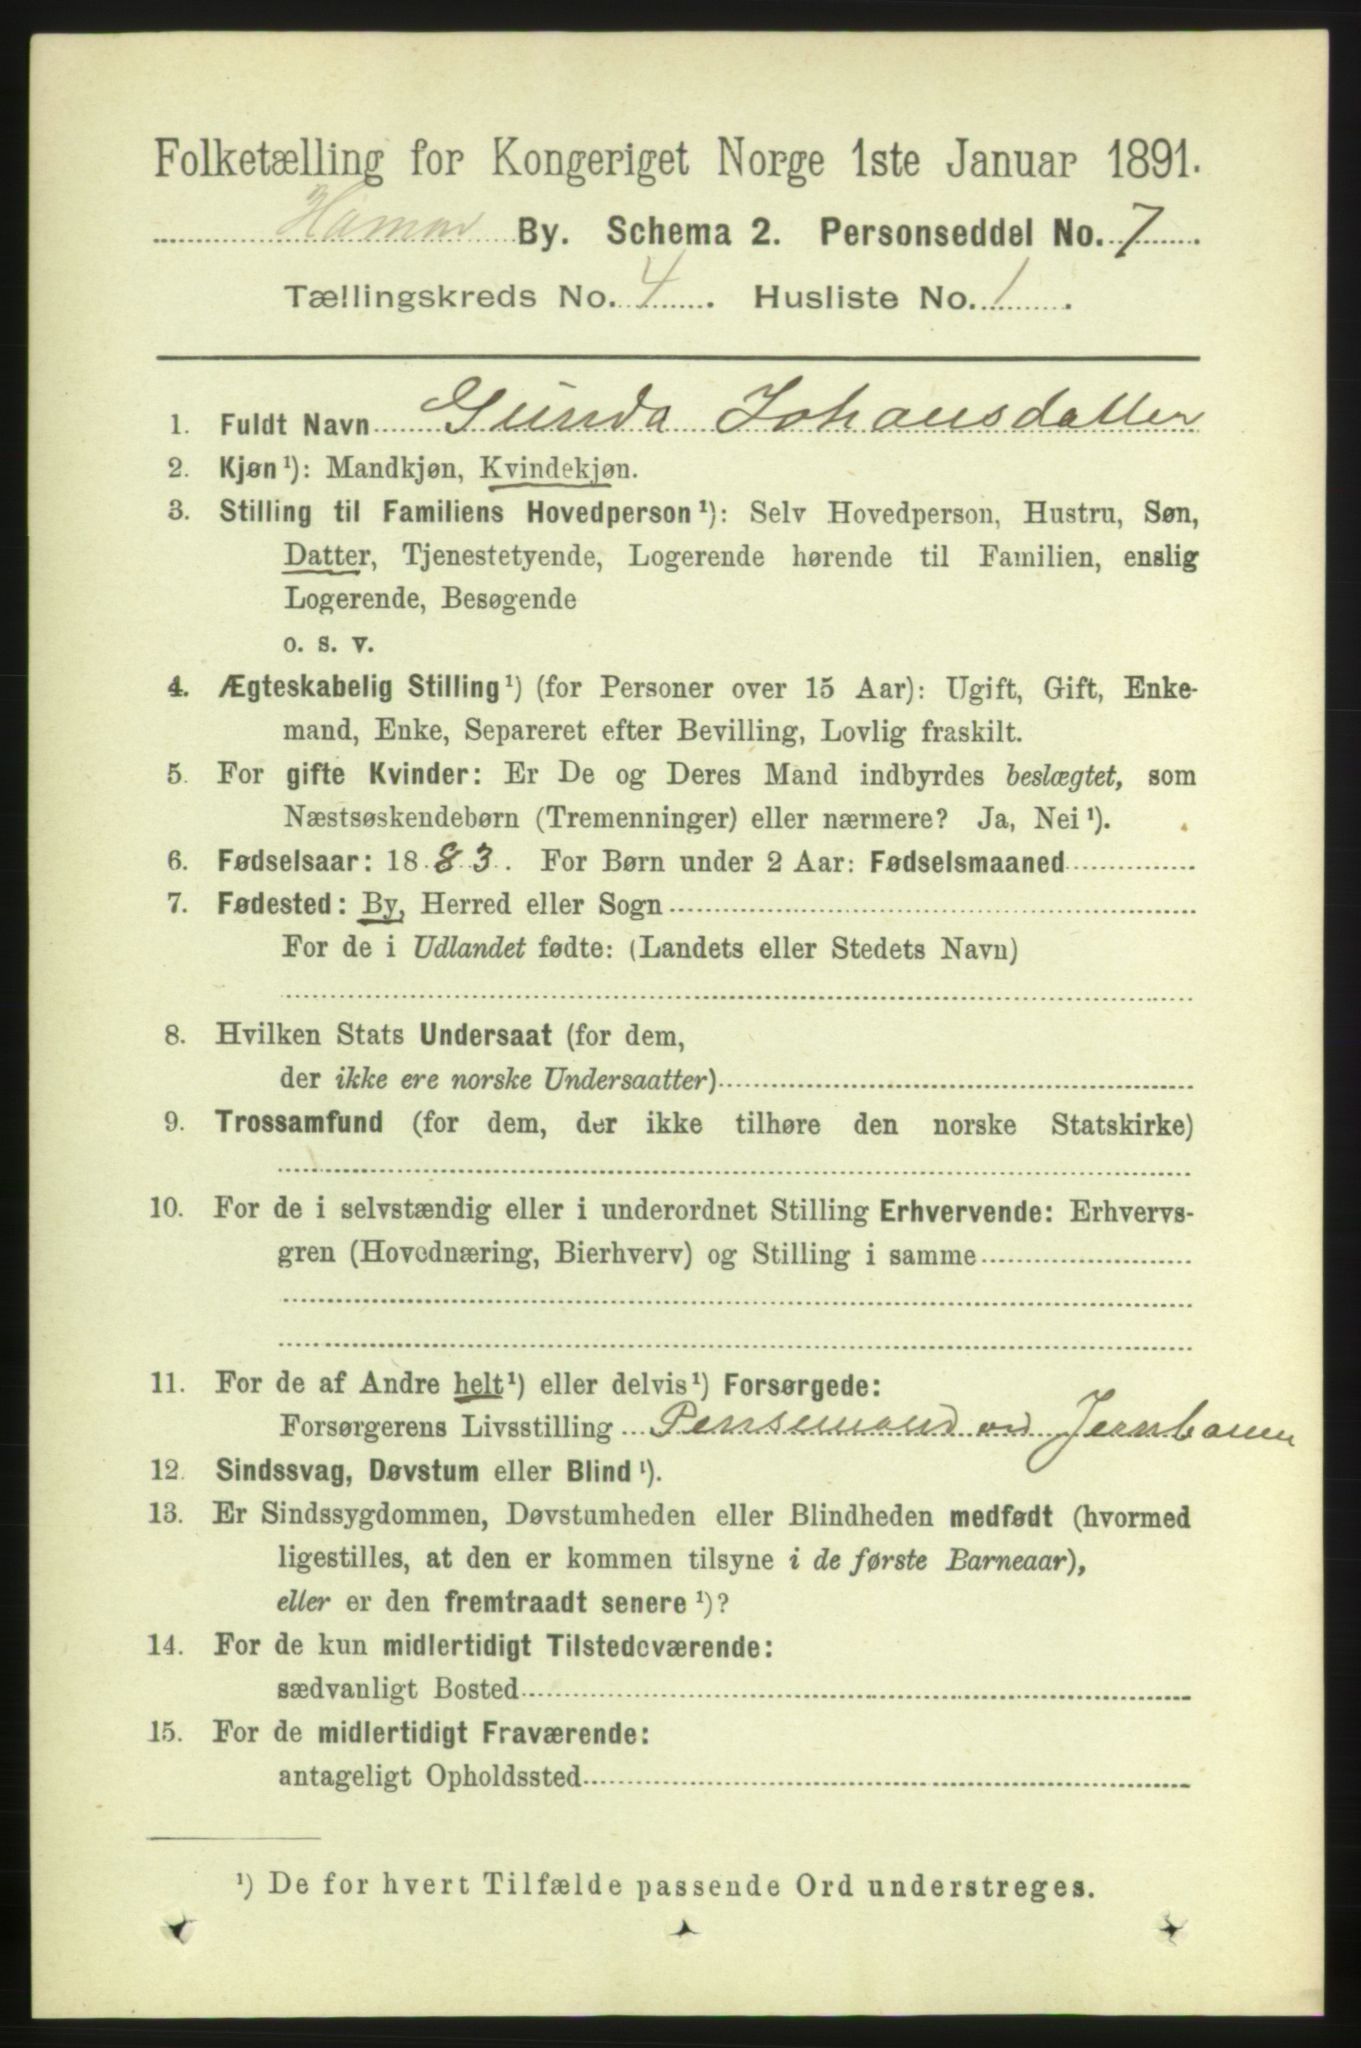 Folketælling for Kongeriget Norge 1ste Januar 1891.
Hamar By. Schema 2. Personseddel No. 7.
Tællingskreds No. 4. Husliste No. 1.
1. Fuldt Navn Gunda Johansdatter
2. Kjøn¹): Mandkjøn, Kvindekjøn.
3. Stilling til Familiens Hovedperson¹): Selv Hovedperson, Hustru, Søn,
Datter, Tjenestetyende, Logerende hørende til Familien, enslig
Logerende, Besøgende
o. s. v.
4. Ægteskabelig Stilling¹) (for Personer over 15 Aar): Ugift, Gift, Enke-
mand, Enke, Separeret efter Bevilling, Lovlig fraskilt.
5. For gifte Kvinder: Er De og Deres Mand indbyrdes beslægtet, som
Næstsøskendebørn (Tremenninger) eller nærmere? Ja, Nei¹).
6. Fødselsaar: 1883. For Børn under 2 Aar: Fødselsmaaned
7. Fødested: By, Herred eller Sogn
For de i Udlandet fødte: (Landets eller Stedets Navn)
8. Hvilken Stats Undersaat (for dem,
der ikke ere norske Undersaatter)
9. Trossamfund (for dem, der ikke tilhøre den norske Statskirke)
10. For de i selvstændig eller i underordnet Stilling Erhvervende: Erhvervs-
gren (Hovednæring, Bierhverv) og Stilling i samme
11. For de af Andre helt¹) eller delvis¹) Forsørgede:
Forsørgerens Livsstilling Pensemand ved Jernbanen
12. Sindssvag, Døvstum eller Blind¹).
13. Er Sindssygdommen, Døvstumheden eller Blindheden medfødt (hvormed
ligestilles, at den er kommen tilsyne i de første Barneaar),
eller er den fremtraadt senere¹)?
14. For de kun midlertidigt Tilstedeværende:
sædvanligt Bosted
15. For de midlertidigt Fraværende:
antageligt Opholdssted
¹) De for hvert Tilfælde passende Ord understreges.